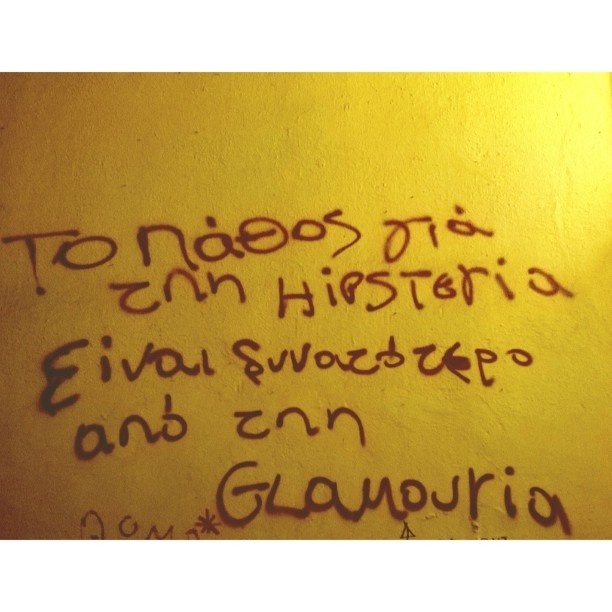 Το πάθος γιά
την HiPSTEria
Είναι δυνατότερο
από την
GLAMOUria